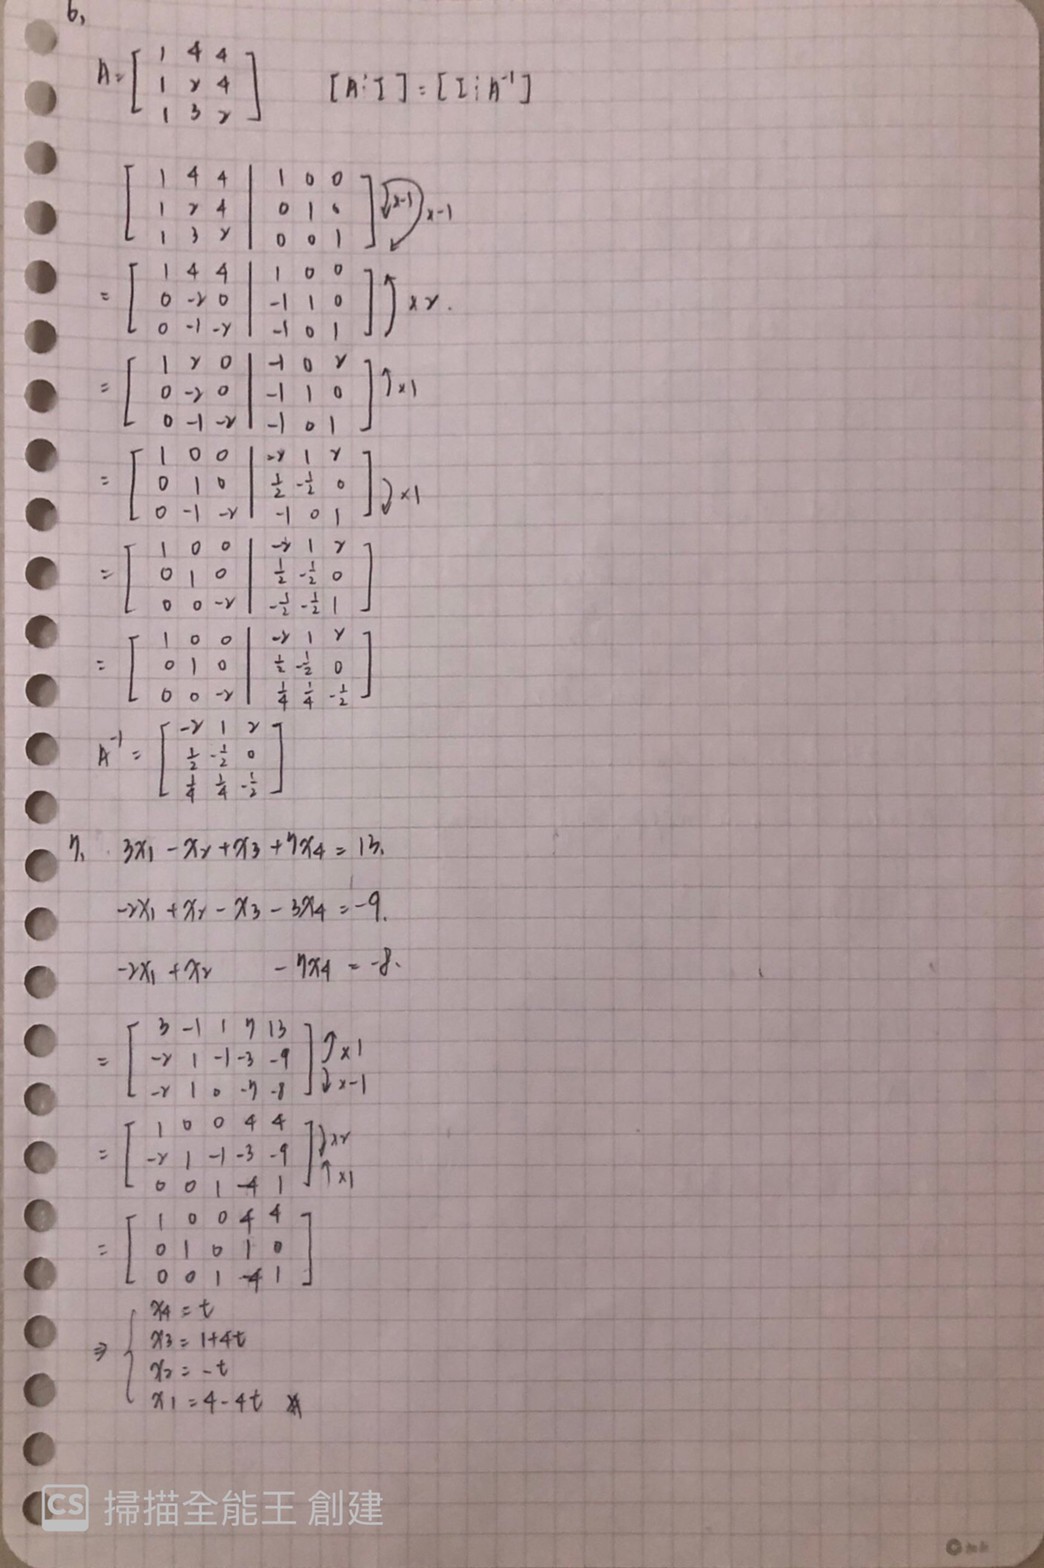 6.
A = [ 1 4 4
1 2 4 [A¦I] = [I¦A⁻¹]
1 3 2 ]
[ 1 4 4 | 1 0 0 ] ×-1
1 2 4 | 0 1 0 ×-1
[ 1 3 2 | 0 0 1 ]
[ 1 4 4 | 1 0 0 ]
= 0 -2 0 | -1 1 0 ×2.
[ 0 -1 -2 | -1 0 1 ]
[ 1 2 0 | -1 0 2 ]
= 0 -2 0 | -1 1 0 ×1
[ 0 -1 -2 | -1 0 1 ]
[ 1 0 0 | -2 1 2 ]
= 0 1 0 | 1/2 -1/2 0 ×1
[ 0 -1 -2 | -1 0 1 ]
[ 1 0 0 | -2 1 2 ]
= 0 1 0 | 1/2 -1/2 0
[ 0 0 -2 | -1/2 -1/2 1 ]
[ 1 0 0 | -2 1 2 ]
= 0 1 0 | 1/2 -1/2 0
[ 0 0 -2 | 1/4 1/4 -1/2 ]
[ -2 1 2 ]
A⁻¹ = 1/2 -1/2 0
[ 1/4 1/4 -1/2 ]
7. 3x₁ - x₂ + x₃ + 7x₄ = 13.
-2x₁ + x₂ - x₃ - 3x₄ = -9.
-2x₁ + x₂ - 7x₄ = -8.
[ 3 -1 1 7 13 ]
= -2 1 -1 -3 -9 ×1
[ -2 1 0 -7 -8 ] ×-1
[ 1 0 0 4 4 ]
= -2 1 -1 -3 -9 ×2
[ 0 0 1 -4 1 ] ×1
[ 1 0 0 4 4 ]
= 0 1 0 1 0
[ 0 0 1 -4 1 ]
x₄ = t
⇒ x₃ = 1+4t
x₂ = -t
x₁ = 4-4t
CS 掃描全能王 創建